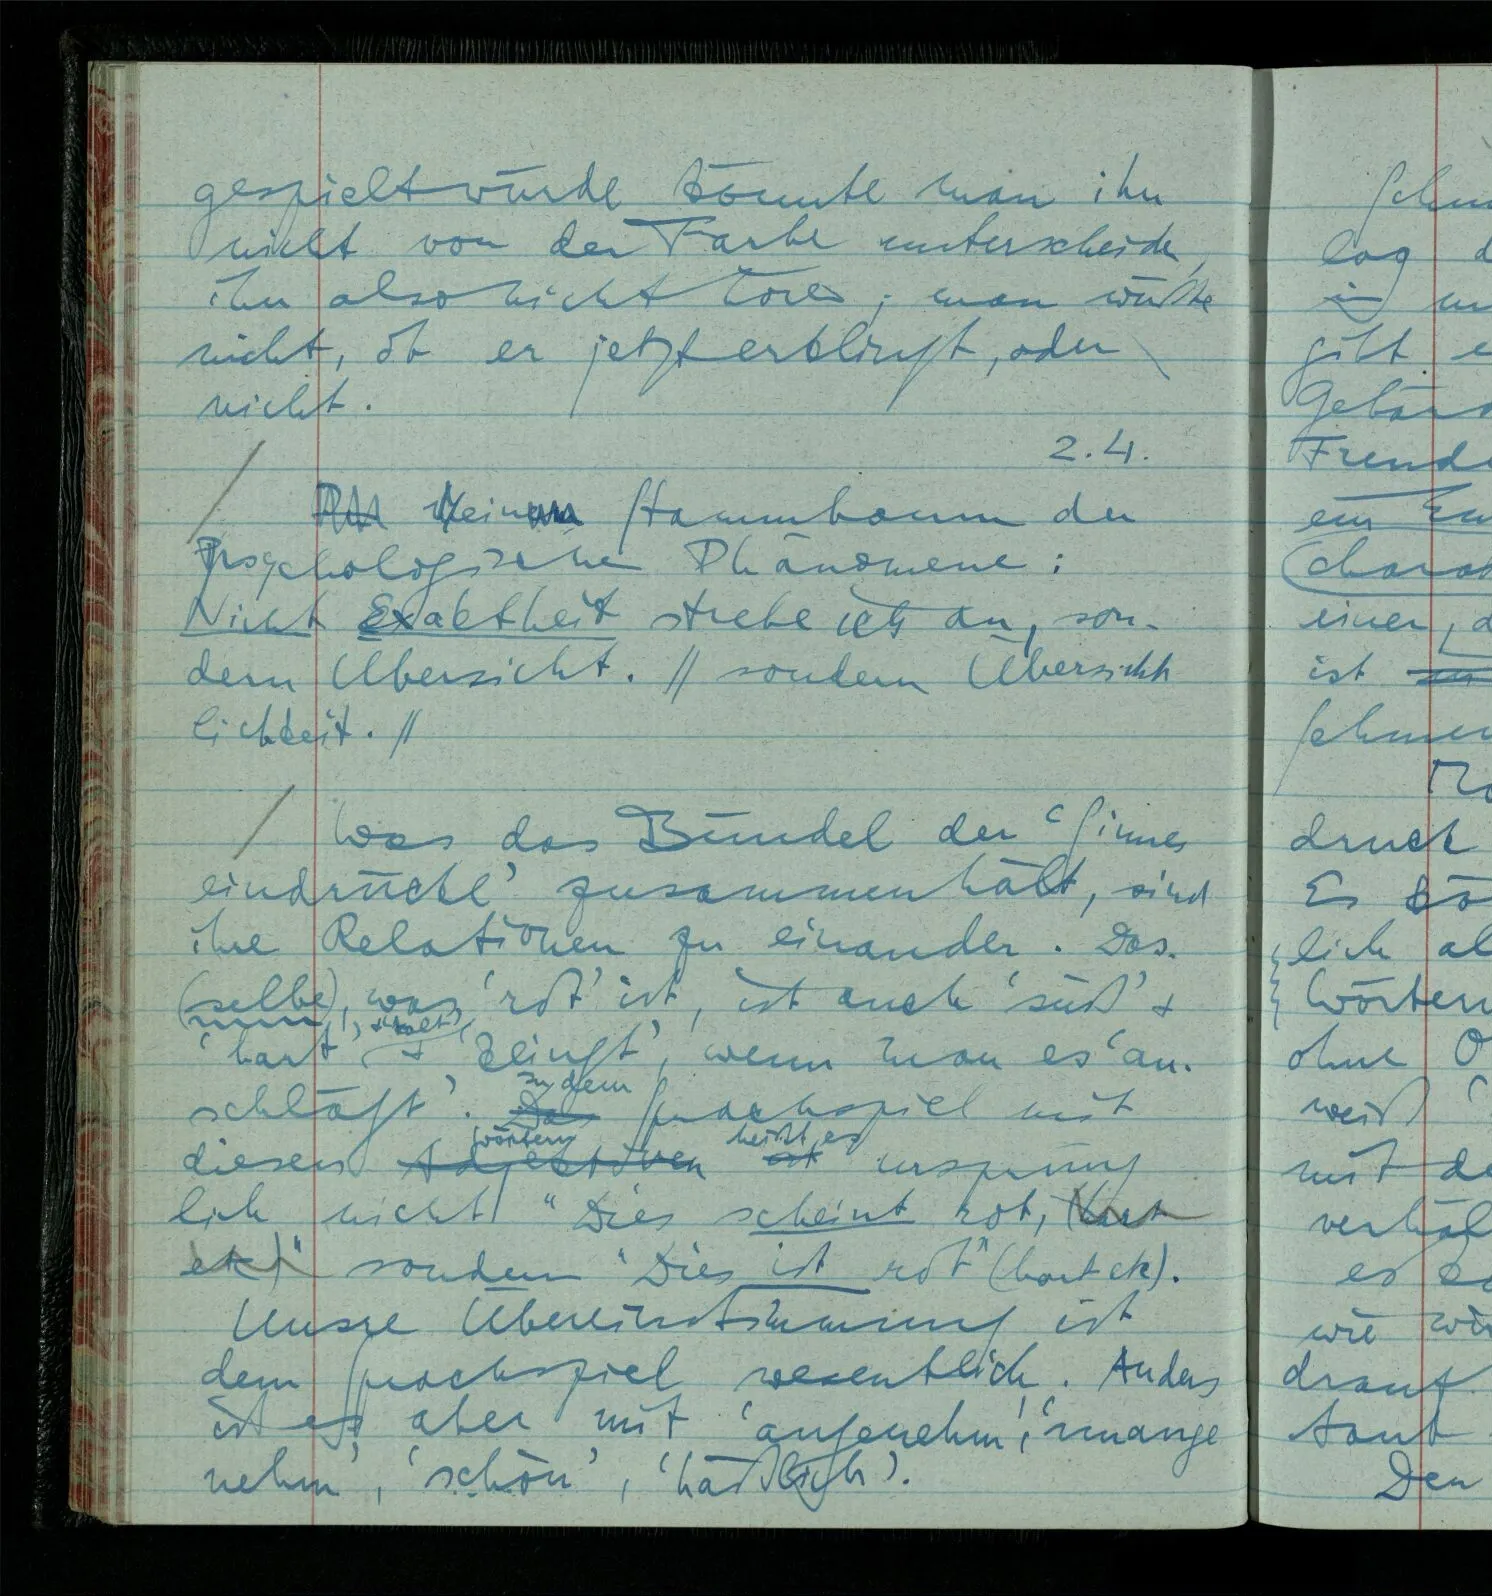 gespielt würde könnte man ihn
nicht von der Farbe unterscheiden,
ihn also nicht hören; man wüßte
nicht, ob er jetzt erklingt, oder
nicht.
2.4.
ein Stammbaum der
Psychologischen Phänomene:
Nicht Exaktheit strebe ich an, son-
dern Übersicht. // sondern Übersicht
lichkeit. //
Was das Bündel der ‘Sinnes
eindrücke’ zusammenhält, sind
ihre Relationen zu einander. Das-
(selbe), was ‘rot’ ist, ist auch ‘süß’ &
‘hart’, & ‘kalt’, & ‘klingt’, wenn man es ‘an-
schlägt’. Zu dem Das Sprachspiel mit
diesen Wörtern Adjektiven heißt es ist ursprüng
lich nicht “Dies scheint rot, (hart
etc)” sondern “Dies ist rot” (hart etc).
Unsre Übereinstimmung ist
dem Sprachspiel wesentlich. Anders
ist es aber mit ‘angenehm’, ‘unange
nehm’, ‘schön’, ‘häßlich’.
lag
gibt
Gebärd
Freude
ein
charak
einer, d
ist
druck
Es kö
lich al
Wörtern
ohne O
weiß
mit de
verhäl
wie wir
drauf
Den